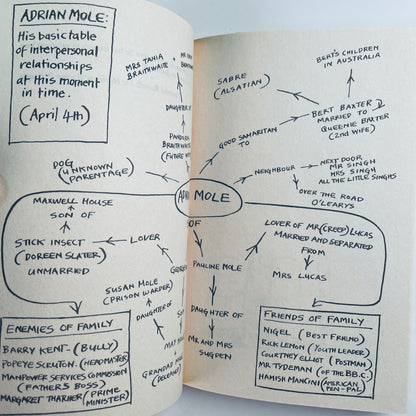 ADRIAN MOLE:
His basic table
of interpersonal
relationships
at this moment
in time.
(April 4th)
MRS TANIA
BRAITHWAITE
+
MR
DAUGHTER OF
PANDORA
BRAITHWAITE
(FUTURE
DOG
(UNKNOWN
PARENTAGE)
SABRE
(ALSATIAN)
BERT'S CHILDREN
IN AUSTRALIA
BERT BAXTER
MARRIED TO
QUEENIE BAXTER
(2nd WIFE)
GOOD SAMARITAN
TO
NEIGHBOUR
NEXT DOOR
MR SINGH
MRS SINGH
ALL THE LITTLE SINGHS
OVER THE ROAD
O'LEARYS
MOLE
MAXWELL HOUSE
SON OF
STICK INSECT
(DOREEN SLATER)
UNMARRIED
LOVER
OF
PAULINE MOLE
DAUGHTER OF
MR AND MRS
SUGDEN
LOVER OF MR (CREEP) LUCAS
MARRIED AND SEPARATED
FROM
MRS LUCAS
SUSAN MOLE
(PRISON WARDER)
DAUGHTER OF
ENEMIES OF FAMILY
BARRY KENT - (BULLY)
POPEYE SCRUTON. (HEADMASTER)
MANPOWER SERVICES COMMISSION
(FATHER'S BOSS)
MARGARET THATCHER (PRIME
MINISTER)
FRIENDS OF FAMILY
NIGEL (BEST FRIEND)
RICK LEMON (YOUTH LEADER)
COURTNEY ELLIOT (POSTMAN)
MR. TYDEMAN (OF THE B.B.C.)
HAMISH MANCINI (AMERICAN
PEN-PAL)